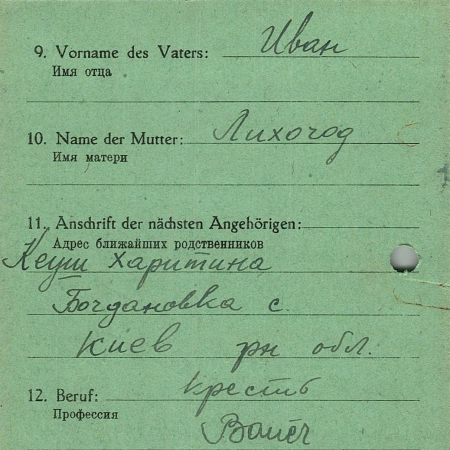 9. Vorname des Vaters: Иван
Имя отца
10. Name der Mutter: Лихогод
Имя матери
11. Anschrift der nächsten Angehörigen:
Адрес ближайших родственников
Кеуш Харитина
Богдановка с.
Киев рн обл.
12. Beruf: крестб
Профессия
Bauer